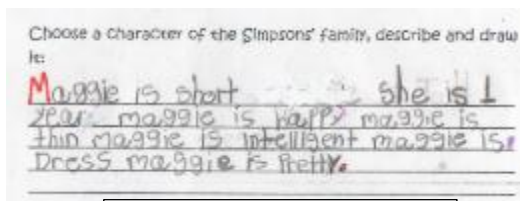 Choose a character of the Simpsons' family, describe and draw
it:
Maggie is short she is 1
year maggie is happy maggie is
thin maggie is intelligent maggie is
Dress maggie is Pretty.